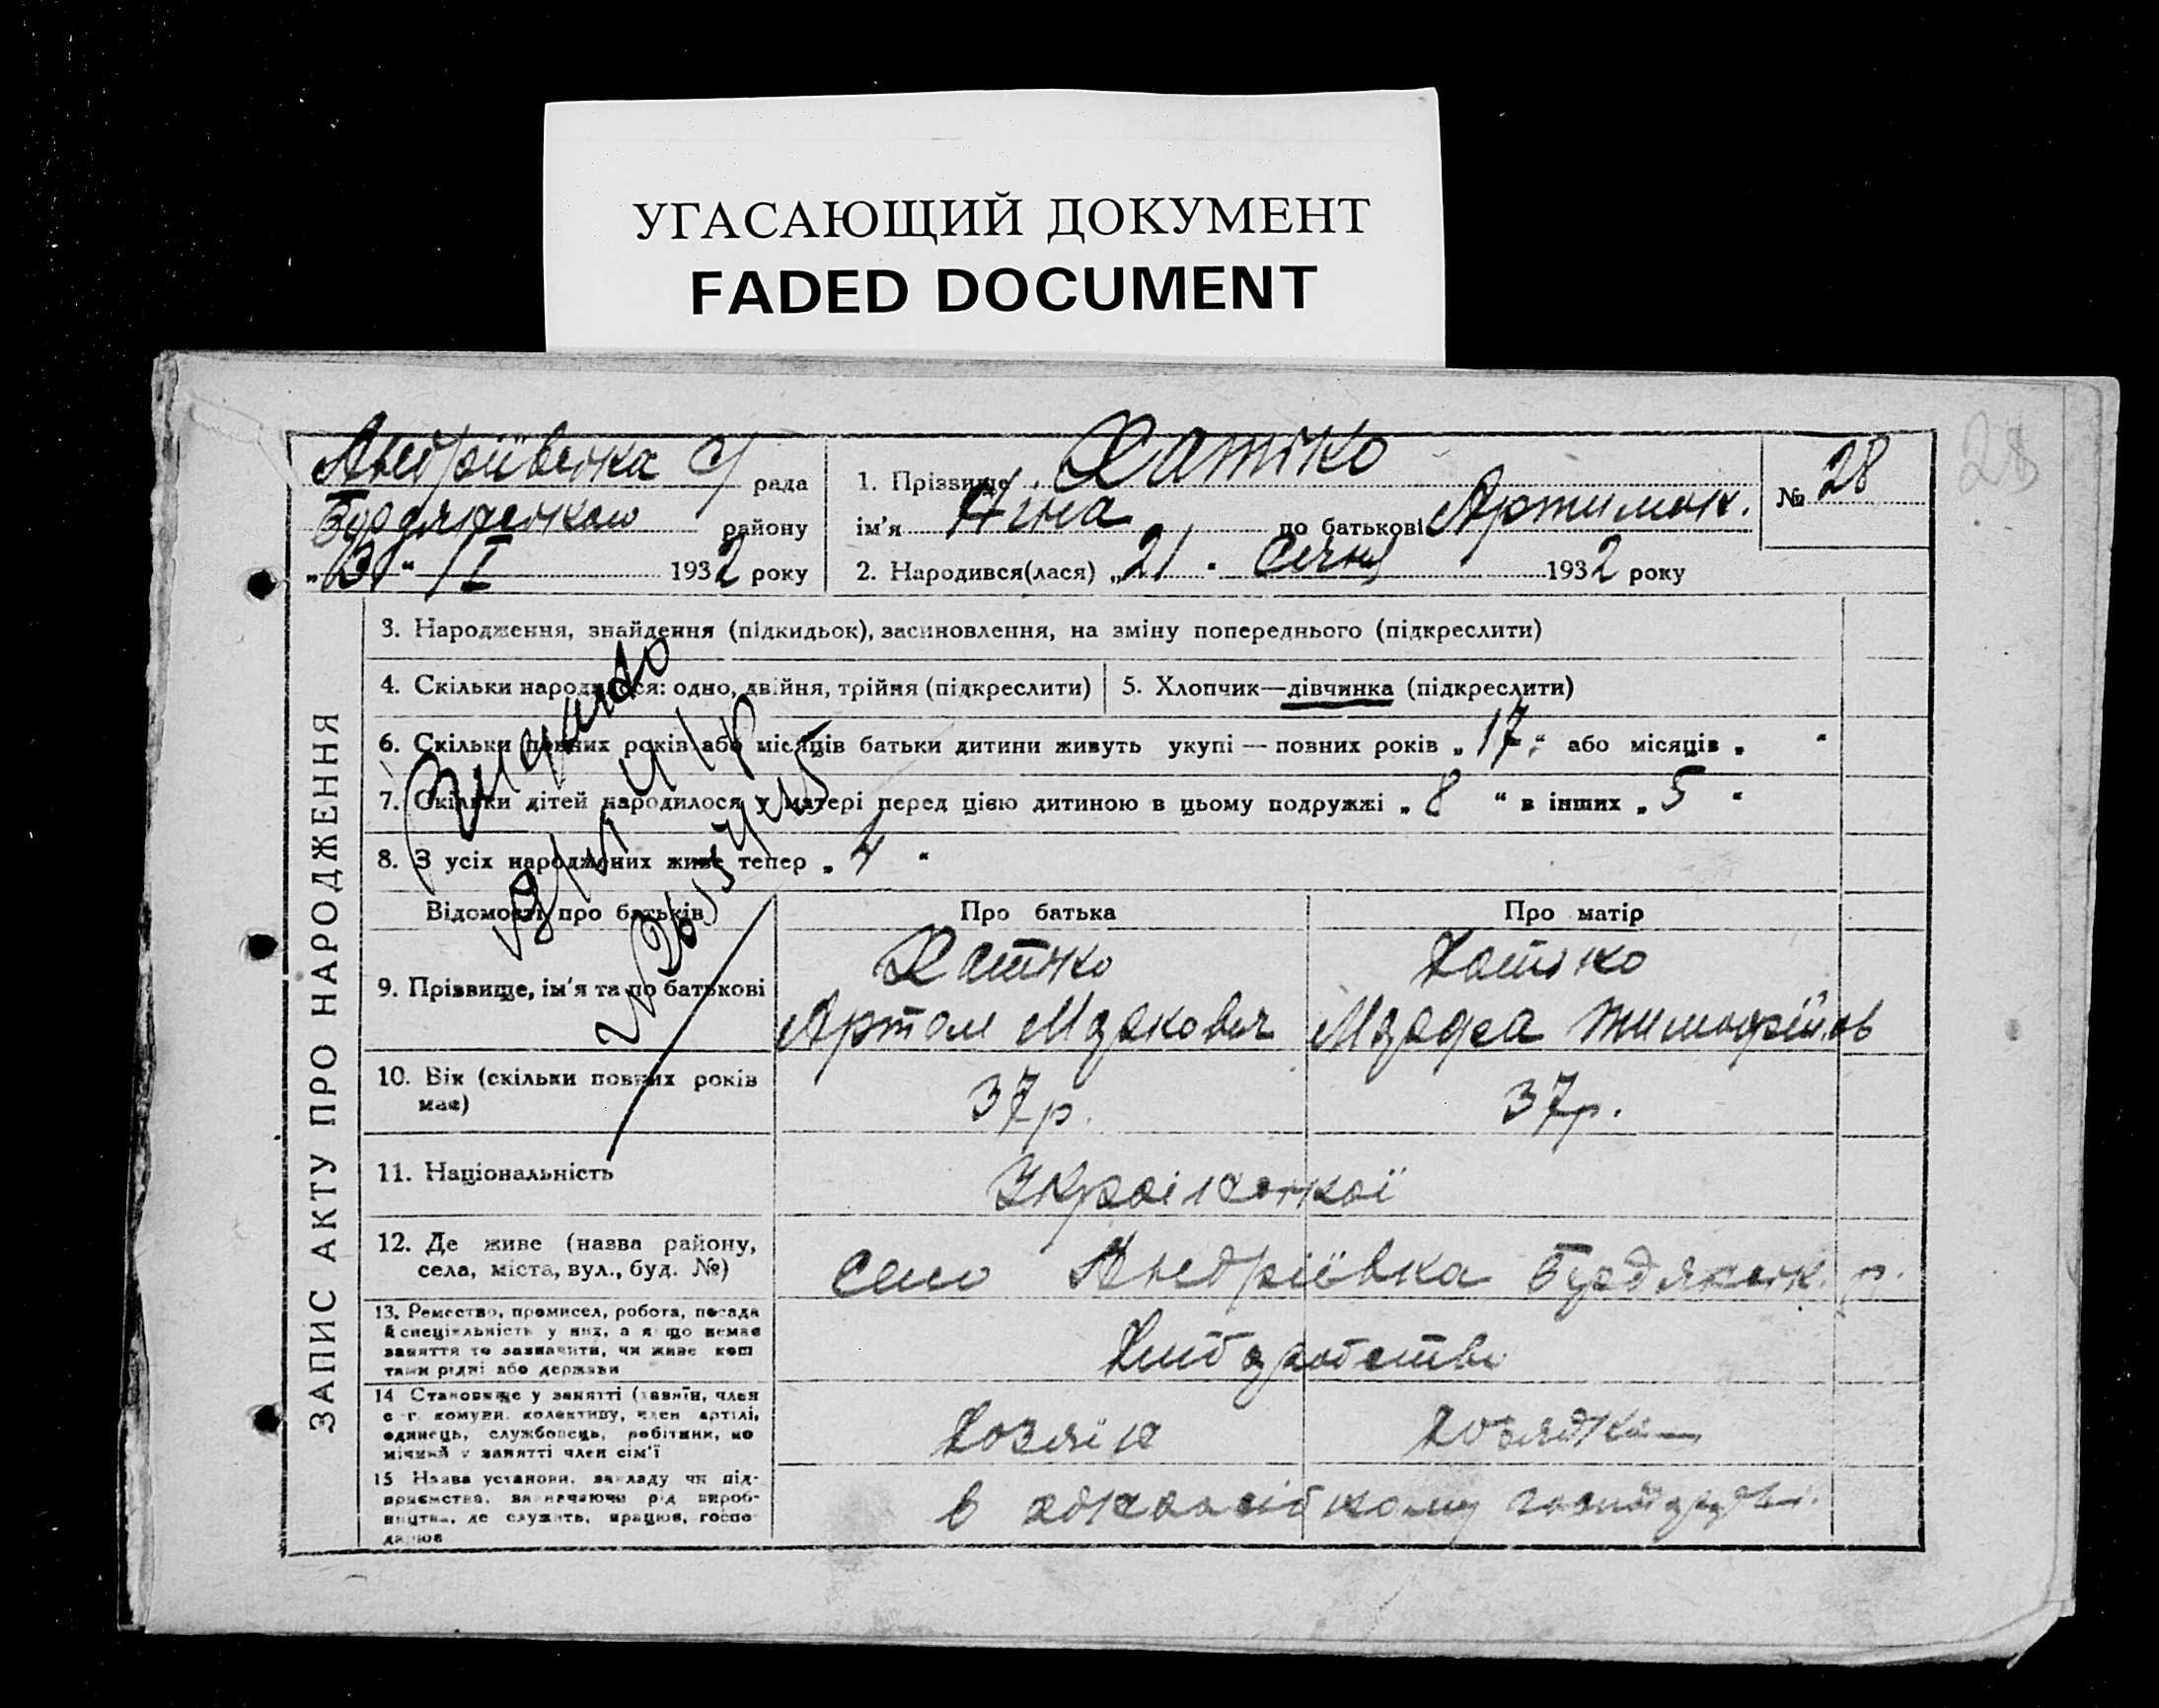 УГАСАЮЩИЙ ДОКУМЕНТ
FADED DOCUMENT
28
Андріївська с/ рада
Бердянського району
„31“ I 1932 року
1. Прізвище Хатько
ім'я Ніна по батькові Артимов.
2. Народився(лася) „21. Січня 1932 року
№ 28
ЗАПИС АКТУ ПРО НАРОДЖЕННЯ
3. Народження, знайдення (підкидьок), засиновлення, на зміну попереднього (підкреслити)
4. Скільки народилося: одно, двійня, трійня (підкреслити)
5. Хлопчик—дівчинка (підкреслити)
6. Скільки повних років або місяців батьки дитини живуть укупі — повних років „ 17 “ або місяців „ “
7. Скільки дітей народилося у матері перед цією дитиною в цьому подружжі „ 8 “ в інших „ 5 “
8. З усіх народжених живе тепер „ 4 “
Видано
Відомості про батьків
Про батька
Про матір
9. Прізвище, ім'я та по батькові
Хатько
Хатько
10. Вік (скільки повних років має)
37 р.
37 р.
11. Національність
Української
12. Де живе (назва району,
села, міста, вул., буд. №)
село Андріївка Бердянськ. р.
13. Ремество, промисел, робота, посада
й спеціяльність у них, а якщо немає
заняття то зазначити, чи живе кош
тами рідні або держави
Хліборобство
14 Становище у занятті (хазяїн, член
с.-г. комуни, колективу, член артілі,
одинець, службовець, робітник, по
мічний у занятті член сім'ї
Хозяїн
Хозяйка
15 Назва установи, закладу чи під-
приємства, зазначаючи рід вироб-
ництва, де служить, працює, госпо-
дарює
в